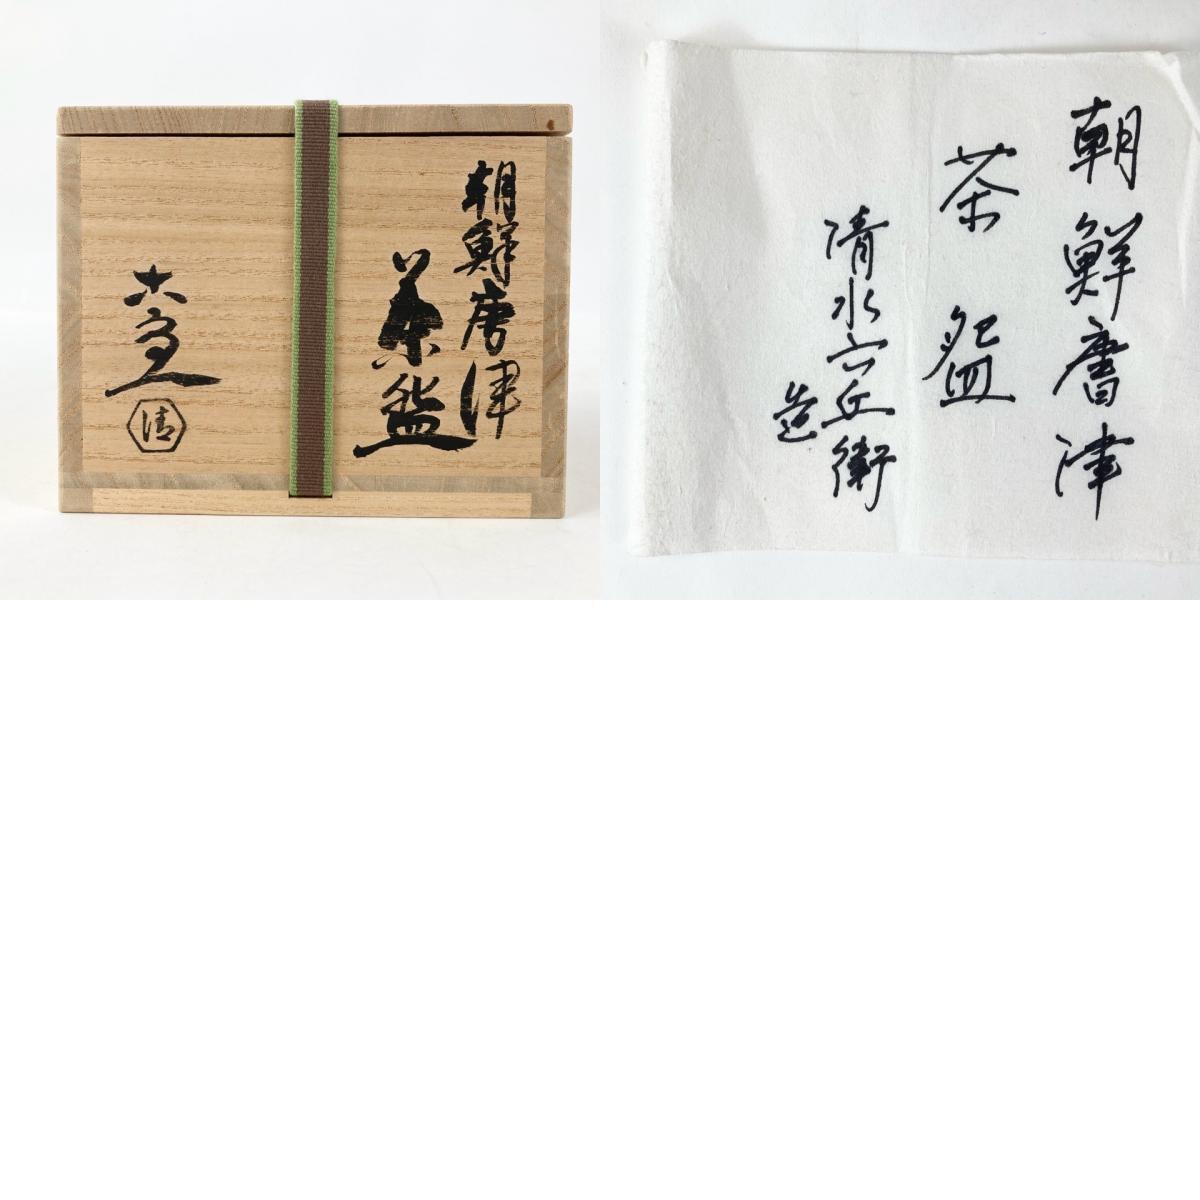 朝鮮唐津
茶盌
六兵衛
清
朝鮮唐津
茶盌
清水六兵衛
造